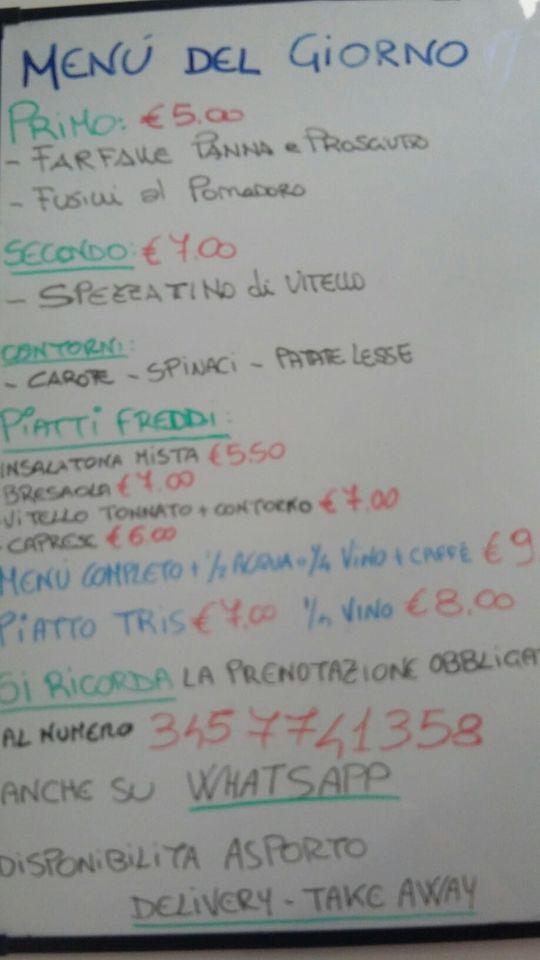 MENÚ DEL GIORNO
PRIMO: € 5.00
- FARFALLE PANNA e PROSCIUTTO
- Fusilli al Pomodoro
SECONDO: € 7.00
- SPEZZATINO di VITELLO
CONTORNI:
- CAROTE - SPINACI - PATATE LESSE
PIATTI FREDDI:
INSALATONA MISTA € 5.50
BRESAOLA € 7.00
VITELLO TONNATO + CONTORNO € 7.00
- CAPRESE € 6.00
MENÚ COMPLETO + 1/2 ACQUA o 1/4 VINO + CAFFÈ € 9.
PIATTO TRIS € 7.00 VINO € 8.00
SI RICORDA LA PRENOTAZIONE OBBLIGAT
AL NUMERO 3457741358
ANCHE SU WHATSAPP
DISPONIBILITA ASPORTO
DELIVERY - TAKE AWAY